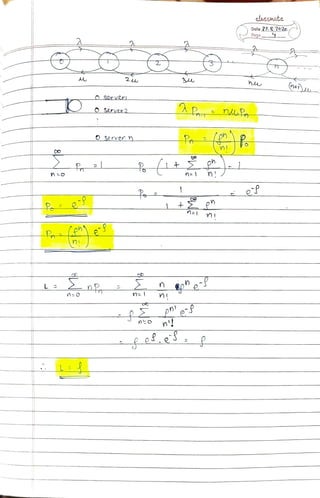 classmate
Date 27.8.2020
Page 4
λ λ λ λ λ
0 1 2 3 ... n ...
μ 2μ 3μ nμ (n+1)μ
O server 1
O server 2
:
O server n
λ Pn-1 = nμPn
Pn = (ρⁿ/n!) P₀
∞Σn=0 Pn = 1 P₀ (1 + ∞Σn=1 ρⁿ/n!) = 1
P₀ = 1 / (1 + ∞Σn=1 ρⁿ/n!) = e^-ρ
P₀ = e^-ρ
Pn = (ρⁿ/n!) e^-ρ
L = ∞Σn=0 nPn = ∞Σn=1 n/n! ρⁿ e^-ρ
= ρ ∞Σn'=0 ρ^n'/n'! e^-ρ
= ρ . e^ρ . e^-ρ = ρ
∴ L = ρ